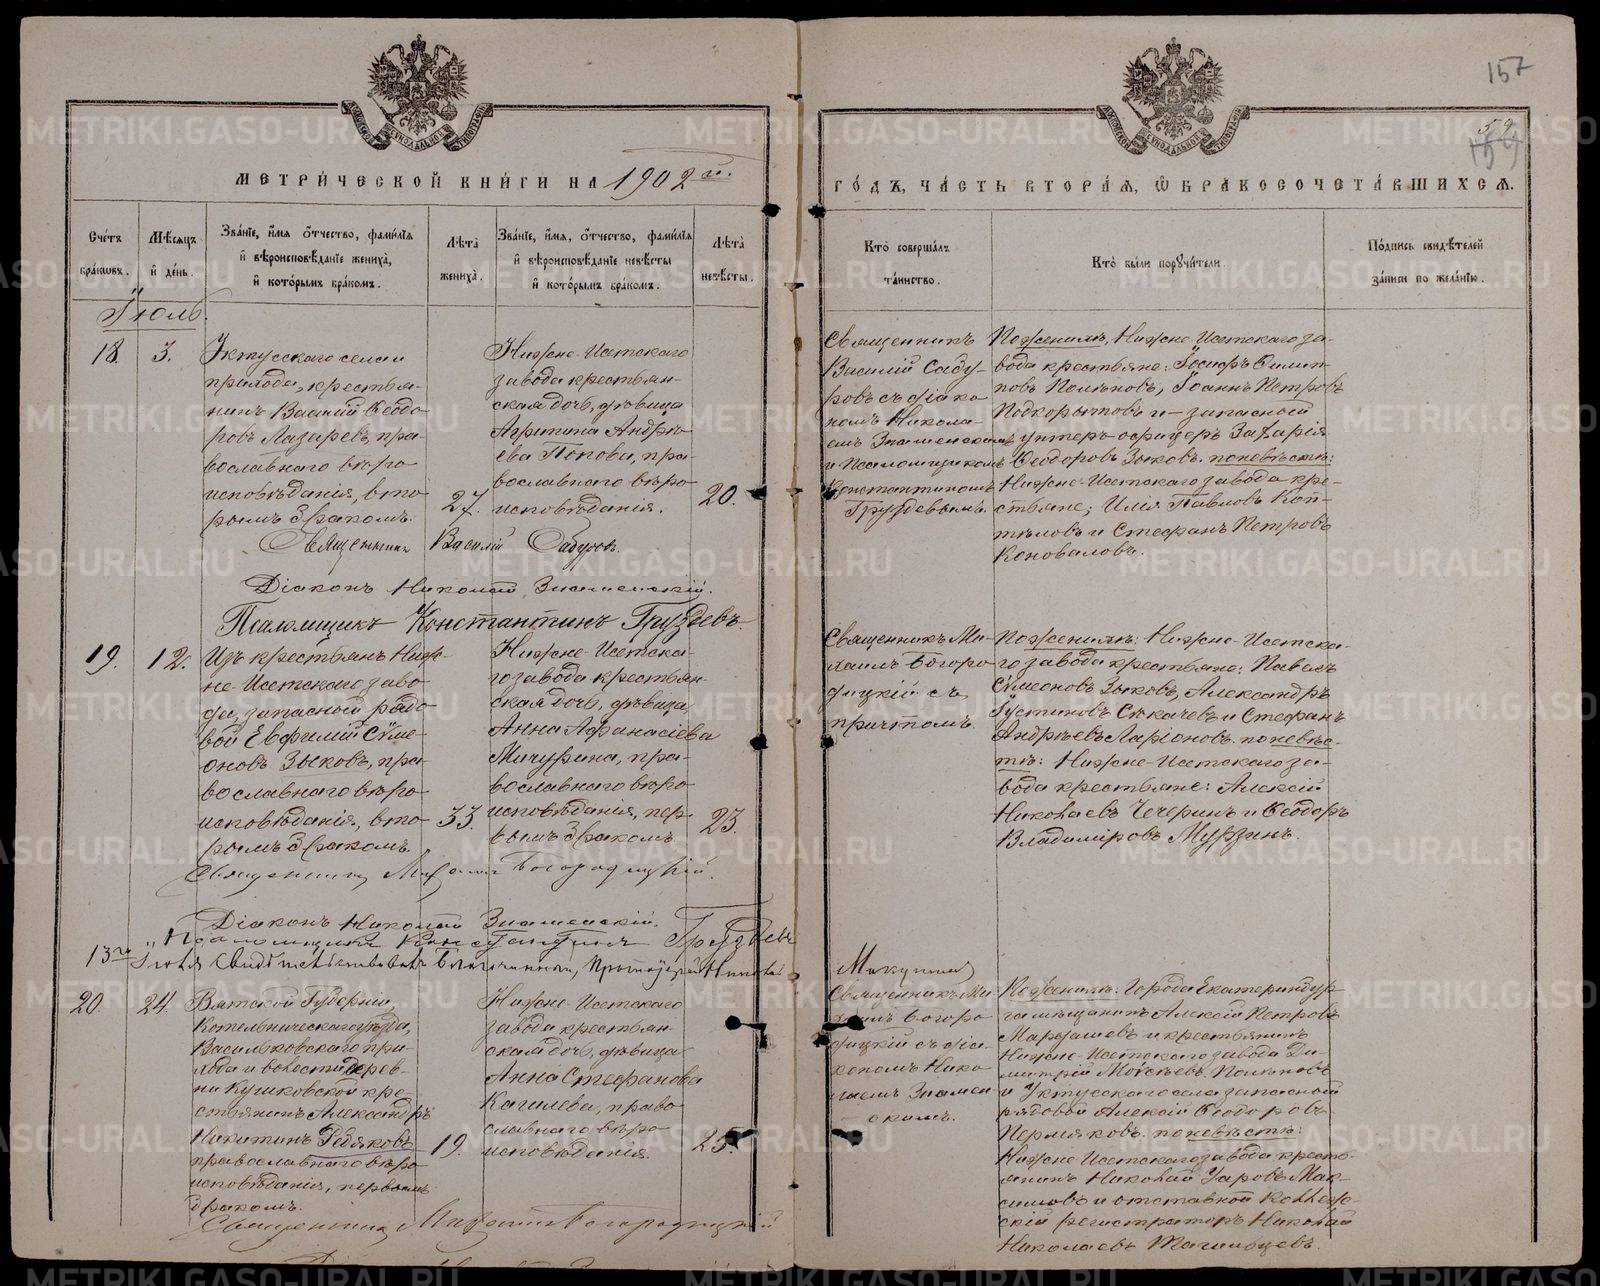 157
59
159
МЕТРИЧЕСКОЙ КНИГИ НА 1902 й.
ГОДЪ, ЧАСТЬ ВТОРАЯ, Ѡ БРАКОСОЧЕТАВШИХСЯ.
Счетъ браковъ.
Мѣсяцъ и день.
Званіе, имя, отчество, фамилія и вѣроисповѣданіе жениха, и которымъ бракомъ.
Лѣта жениха.
Званіе, имя, отчество, фамилія и вѣроисповѣданіе невѣсты и которымъ бракомъ.
Лѣта невѣсты.
Кто совершалъ таинство.
Кто были поручители.
Подпись свидѣтелей записи по желанію.
Іюль.
18.
3.
Уктусскаго села и
прихода, крестья-
нинъ Василій Ѳеодо-
ровъ Лазаревъ, пра-
вославнаго вѣро
исповѣданія, вто-
рымъ бракомъ.
27.
Нижне-Исетскаго
завода крестьян-
ская дочь, дѣвица
Агрипина Андрѣ-
ева Попова, пра-
вославнаго вѣро
исповѣданія.
20.
Священникъ
Василій Сабу-
ровъ съ діако
номъ Никола-
емъ Знаменскимъ
и псаломщикомъ
Константиномъ
Груздевымъ.
По женихѣ, Нижне-Исетскаго за-
вода крестьяне: Іосифъ Филип-
повъ Полѣновъ, Іоаннъ Петровъ
Подкорытовъ и – запасной
унтеръ-офицеръ Захарія
Ѳеодоровъ Зыковъ. по невѣстѣ:
Нижне-Исетскаго завода кре-
стьяне; Илія Павловъ Коп-
тѣловъ и Стефанъ Петровъ
Коноваловъ.
Священникъ Василій Сабуровъ.
Діаконъ Николай Знаменскій.
Псаломщикъ Константинъ Груздевъ.
19.
12.
Изъ крестьянъ Ниж-
не-Исетскаго заво-
да, запасной рядо-
вой Евфимій Сѵме-
оновъ Зыковъ, пра-
вославнаго вѣро-
исповѣданія, вто-
рымъ бракомъ.
33.
Нижне-Исетска-
го завода крестьян-
ская дочь, дѣвица
Анна Аѳанасіева
Мичурина, пра-
вославнаго вѣро-
исповѣданія, пер-
вымъ бракомъ.
23.
Священникъ Ми-
хаилъ Богоро-
дицкій съ
причтомъ.
По женихѣ: Нижне-Исетска-
го завода крестьяне: Павелъ
Сѵмеоновъ Зыковъ, Александръ
Іустиновъ Сѣкачевъ и Стефанъ
Андрѣевъ Ларіоновъ. по невѣс-
тѣ: Нижне-Исетскаго за-
вода крестьяне: Алексій
Николаевъ Чечеринъ и Ѳеодоръ
Владиміровъ Мурзинъ.
Священникъ Михаилъ Богородицкій.
Діаконъ Николай Знаменскій.
Псаломщикъ Константинъ Груздевъ
13го Іюля Свидѣтельствовалъ Благочинный, Протоіерей Николай
20.
24.
Вятской Губерніи,
Котельническаго уѣзда,
Васильковскаго при-
хода и волости дерев-
ни Кушковской кре-
стьянинъ Александръ
Никитинъ Рѣдяковъ
православнаго вѣро
исповѣданія, первымъ
бракомъ.
19.
Нижне-Исетскаго
завода крестьян-
ская дочь, дѣвица
Анна Стефанова
Кагилева, право
славнаго вѣро
исповѣданія.
25.
Священникъ Ми-
хаилъ Богоро-
дицкій съ діа-
кономъ Нико-
лаемъ Знамен
скимъ.
По женихѣ: Города Екатеринбур-
га мѣщанинъ Алексій Петровъ
и крестьянинъ
Нижне-Исетскаго завода Ди-
митрій Моисеевъ Полѣновъ
и Уктусскаго села запасной
рядовой Алексій Ѳеодоровъ
Пермяковъ. по невѣстѣ:
Нижне Исетскаго завода кресть-
янинъ Николай Уаровъ Мак-
симовъ и отставной коллеж-
скій регистраторъ Николай
Николаевъ Тагильцевъ.
Священникъ Михаилъ Богородицкій
METRIKI.GASO-URAL.RU